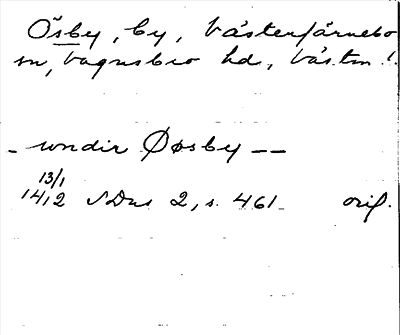 Ösby, by, Västerfärnebo
sn, Vagnsbro hd, Västm.l.
- undir Øøsby --
13/1
1412 SDns 2, s. 461 orig.